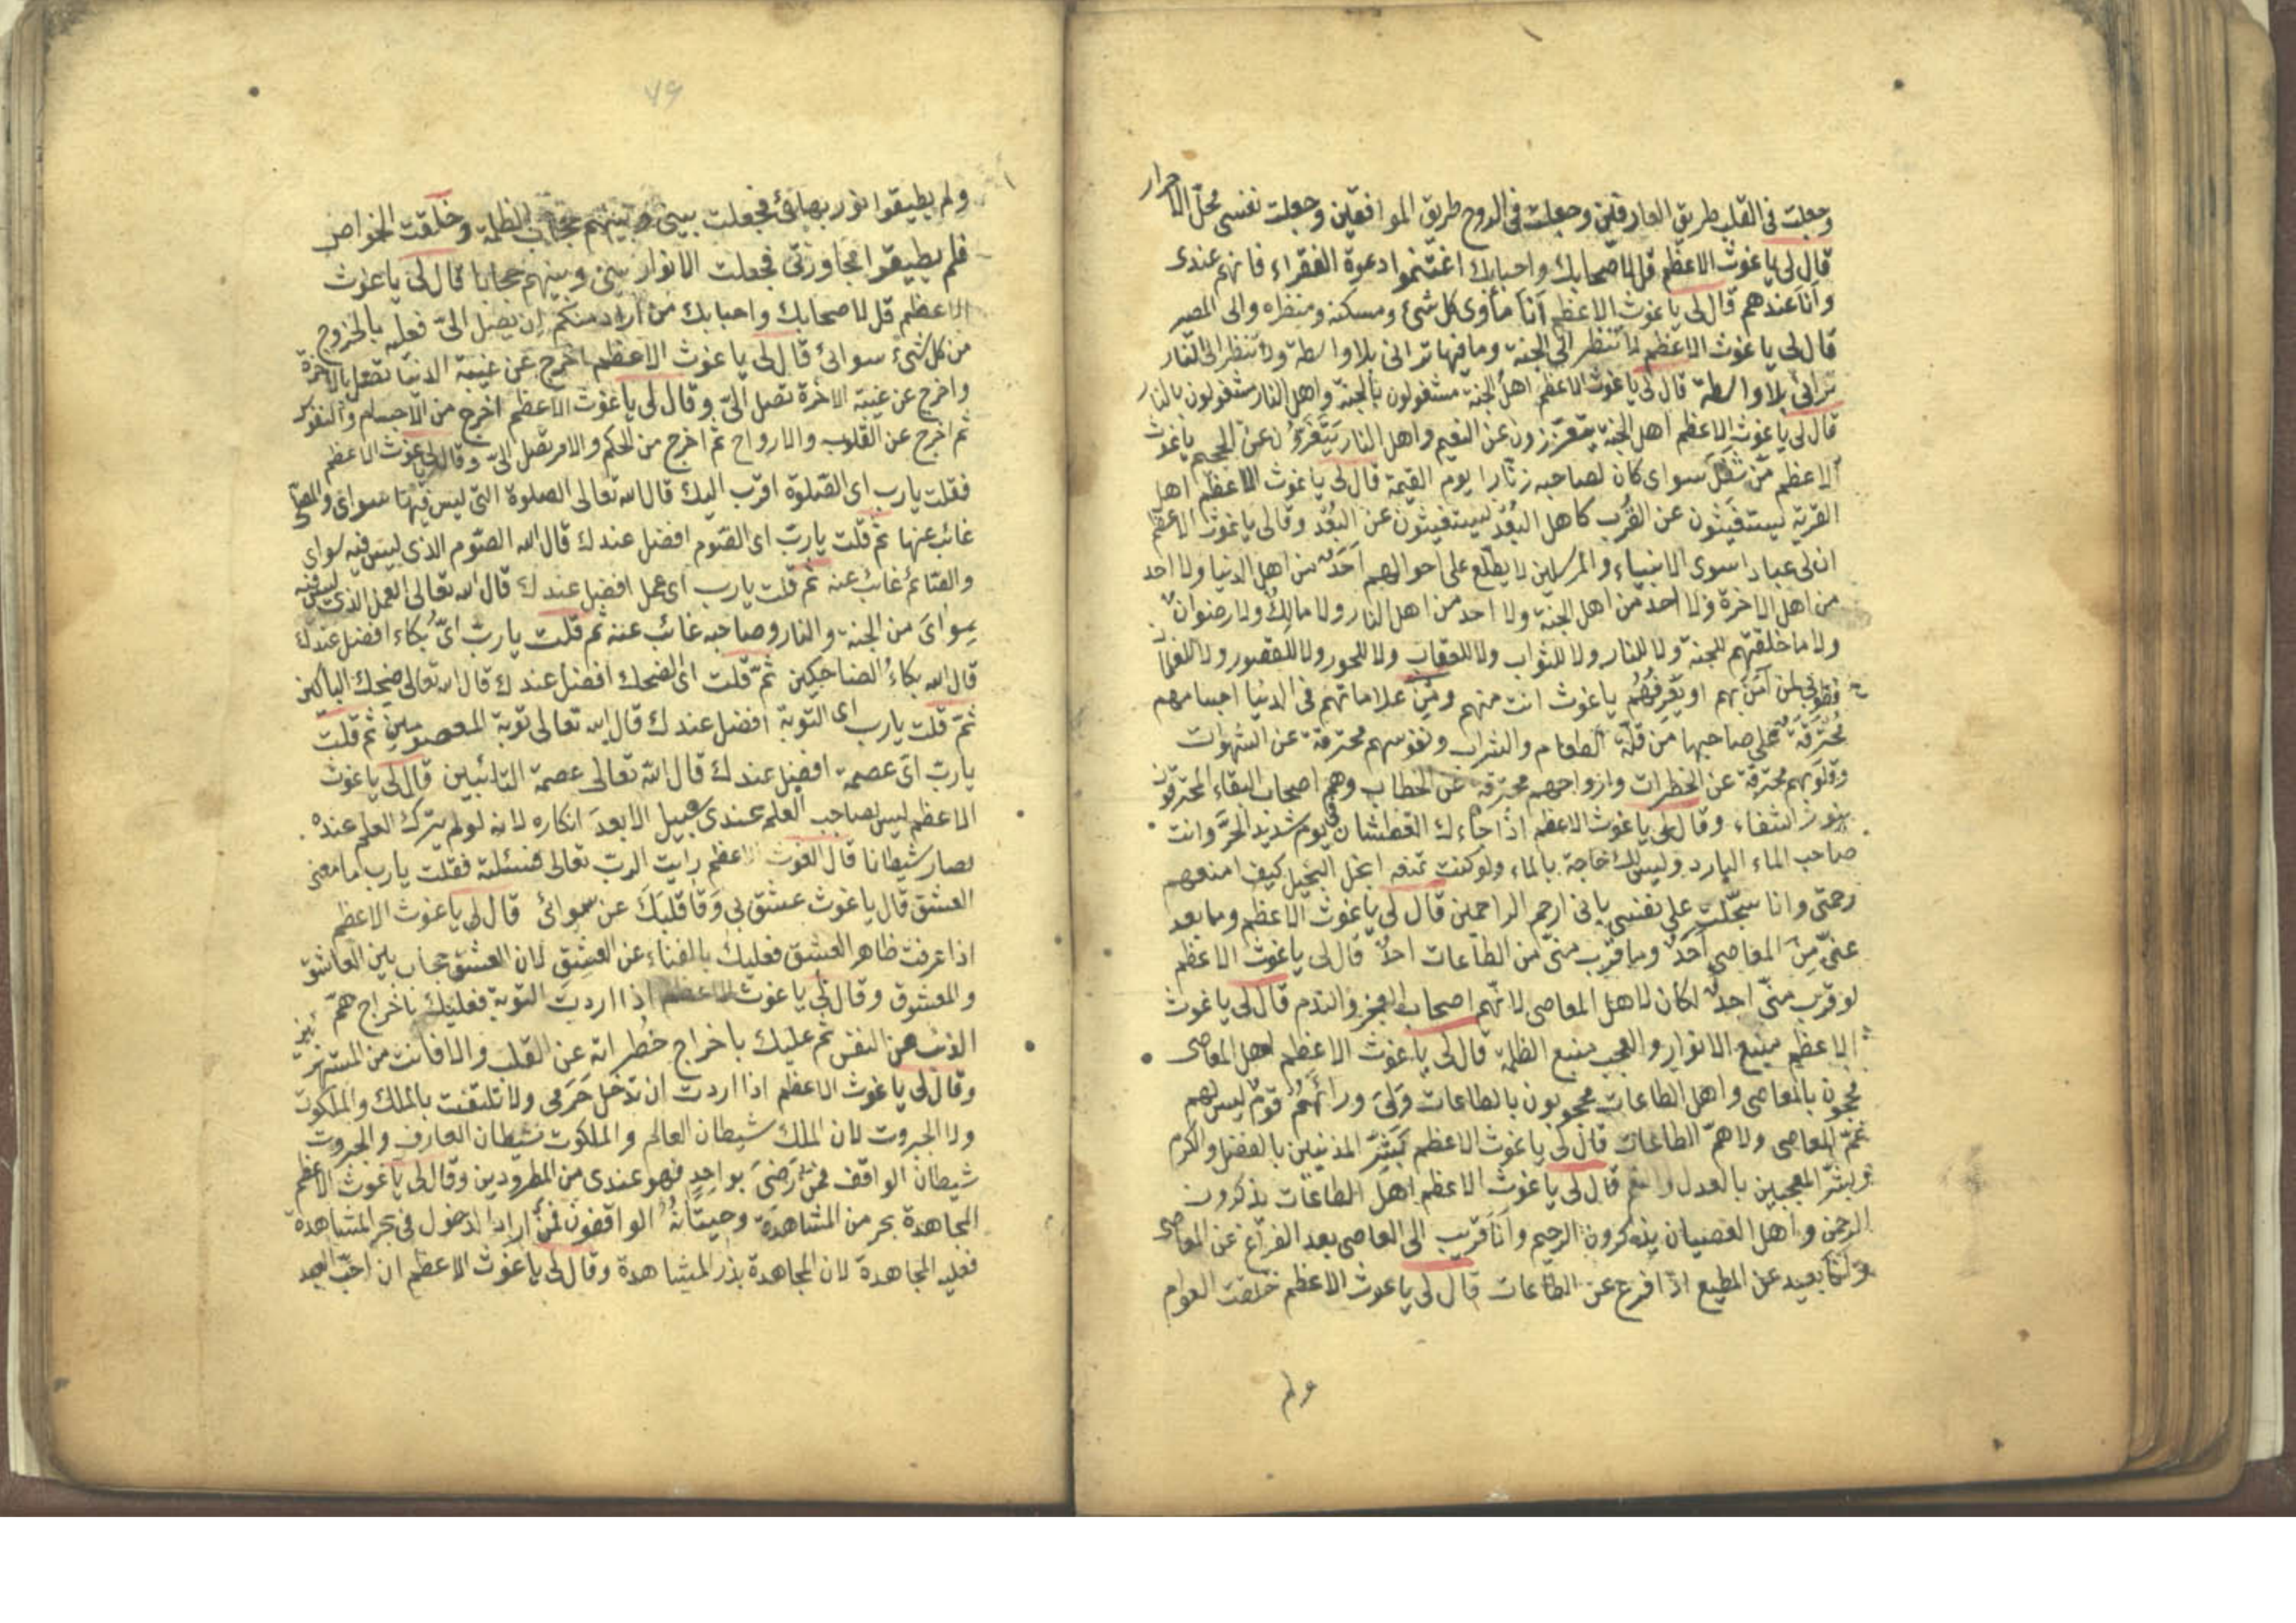 وجعلت فى القلب طريق العارفين وجعلت فى الروح طريق الموافقين وجعلت نفسى محل الاحرار
قال لى يا غوث الاعظم قل لاصحابك واحبابك اغتنموا دعوة الفقراء فانهم عندى
وانا عندهم قال لى يا غوث الاعظم انا مأوى كل شئ ومسكنه ومنظره والى المصير
قال لى يا غوث الاعظم لا تنظر الى الجنة وما فيها ترانى بلا واسطة ولا تنظر الى النار
ترانى بلا واسطة قال لى يا غوث الاعظم اهل الجنة مشغولون بالجنة واهل النار مشغولون بالنار
قال لى يا غوث الاعظم اهل الجنة عن النعيم واهل النار عن الجحيم يا غوث
الاعظم من شغل سواى كان لصاحبه زنارا يوم القيمة قال لى يا غوث الاعظم اهل
القربة يستغيثون عن القرب كاهل البعد يستغيثون عن البعد وقال لى يا غوث الاعظم
ان لى عبادا سوى الانبياء والمرسلين لا يطلع على احوالهم احد من اهل الدنيا ولا احد
من اهل الاخرة ولا احد من اهل الجنة ولا احد من اهل النار ولا مالك ولا رضوان
ولا ما خلقتهم للجنة ولا للنار ولا للثواب ولا للعقاب ولا للحور ولا للقصور ولا للغلمان
فطوبى لمن آمن بهم او يعرفهم يا غوث انت منهم ومن علاماتهم فى الدنيا اجسامهم
محترقة من قلة الطعام والشراب ونفوسهم محترقة عن الشهوات
وقلوبهم محترقة عن الخطرات وارواحهم محترقة عن الخطاب وهم اصحاب البقاء المحترقون
وقال لى يا غوث الاعظم اذا جاءك العطشان فى يوم شديد الحر وانت
صاحب الماء البارد وليس لك حاجة بالماء ولو كنت تمنعه ابخل البخيل كيف امنعهم
رحمتى وانا سجلت على نفسى بانى ارحم الراحمين قال لى يا غوث الاعظم وما بعد
عنى من المعاصى احد وما قرب منى من الطاعات احد قال لى يا غوث الاعظم
لو قرب منى احد لكان لاهل المعاصى لانهم اصحاب العجز والندم قال لى يا غوث
الاعظم منبع الانوار والعجب منبع الظلمة قال لى يا غوث الاعظم اهل المعاصى
محجوبون بالمعاصى واهل الطاعات محجوبون بالطاعات ولى ورائهم قوم ليس لهم
غم المعاصى ولا هم الطاعات قال لى يا غوث الاعظم بشر المذنبين بالفضل والكرم
وبشر المعجبين بالعدل قال لى يا غوث الاعظم اهل الطاعات يذكرون
الرحمن واهل العصيان يذكرون الرحيم وانا قريب الى العاصى بعد الفراغ عن المعاصى
وانا بعيد عن المطيع اذا فرغ عن الطاعات قال لى يا غوث الاعظم خلقت العوام
ولم
٧٩
ولم يطيقوا نور بهائى فجعلت بينى وبينهم حجاب الظلمة وخلقت الخواص
فلم يطيقوا مجاورتى فجعلت الانوار بينى وبينهم حجابا قال لى يا غوث
الاعظم قل لاصحابك واحبابك من اراد منكم ان يصل الى فعليه بالخروج
من كل شئ سوائى قال لى يا غوث الاعظم اخرج عن عقبة الدنيا تصل بالاخرة
واخرج عن عقبة الاخرة تصل الى وقال لى يا غوث الاعظم اخرج من الاجسام والنفوس
ثم اخرج عن القلوب والارواح ثم اخرج من الحكم والامر تصل الى وقال لى يا غوث الاعظم
فقلت يارب اى الصلوة اقرب اليك قال الله تعالى الصلوة التى ليس فيها سواى والمصلى
غائب عنها ثم قلت يارب اى الصوم افضل عندك قال الله الصوم الذى ليس فيه سواى
والصائم غائب عنه ثم قلت يارب اى عمل افضل عندك قال الله تعالى العمل الذى ليس فيه
سواى من الجنة والنار وصاحبه غائب عنه ثم قلت يارب اى بكاء افضل عندك
قال الله بكاء الضاحكين ثم قلت اى ضحك افضل عندك قال الله تعالى ضحك الباكين
ثم قلت يارب اى التوبة افضل عندك قال الله تعالى توبة المعصومين ثم قلت
يارب اى عصمة افضل عندك قال الله تعالى عصمة التائبين قال لى يا غوث
الاعظم ليس لصاحب العلم عندى سبيل الا بعد انكاره لانه لو لم يترك العلم عنده
لصار شيطانا قال الغوث الاعظم رايت الرب تعالى فسئلته فقلت يارب ما معنى
العشق قال يا غوث عشق بى وقا قلبك عن سوائى قال لى يا غوث الاعظم
اذا عرفت ظاهر العشق فعليك بالفناء عن العشق لان العشق حجاب بين العاشق
والمعشوق وقال لى يا غوث الاعظم اذا اردت التوبة فعليك باخراج هم
الذنب من النفس ثم عليك باخراج خطراته عن القلب والا فانت من المستهزئين
وقال لى يا غوث الاعظم اذا اردت ان تدخل حرمى ولا تلتفت بالملك والملكوت
ولا الجبروت لان الملك شيطان العالم والملكوت شيطان العارف والجبروت
شيطان الواقف فمن رضى بواحد فهو عندى من المطرودين وقال لى يا غوث الاعظم
المجاهدة بحر من المشاهدة وحيتانه الواقفون فمن اراد الدخول فى بحر المشاهدة
فعليه المجاهدة لان المجاهدة بذر المشاهدة وقال لى يا غوث الاعظم ان احب العبد